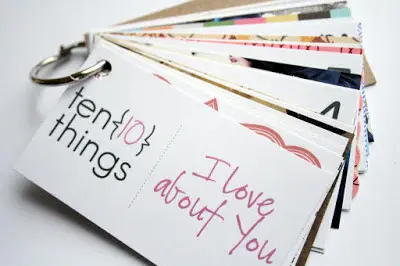 ten{10}
things
I love
about You